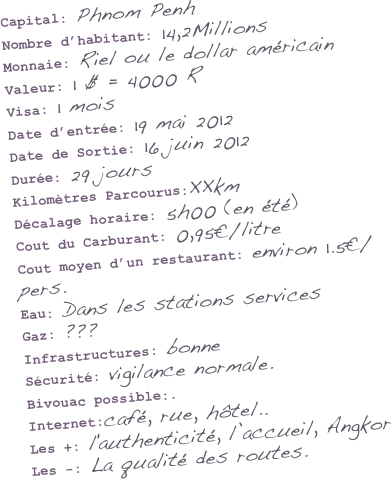 Capital: Phnom Penh
Nombre d'habitant: 14,2Millions
Monnaie: Riel ou le dollar américain
Valeur: 1 $ = 4000 R
Visa: 1 mois
Date d'entrée: 19 mai 2012
Date de Sortie: 16 juin 2012
Durée: 29 jours
Kilomètres Parcourus:XXkm
Décalage horaire: 5h00 (en été)
Cout du Carburant: 0,95€/litre
Cout moyen d'un restaurant: environ 1.5€/
pers.
Eau: Dans les stations services
Gaz: ???
Infrastructures: bonne
Sécurité: vigilance normale.
Bivouac possible:.
Internet:café, rue, hôtel..
Les +: l'authenticité, l'accueil, Angkor
Les -: La qualité des routes.